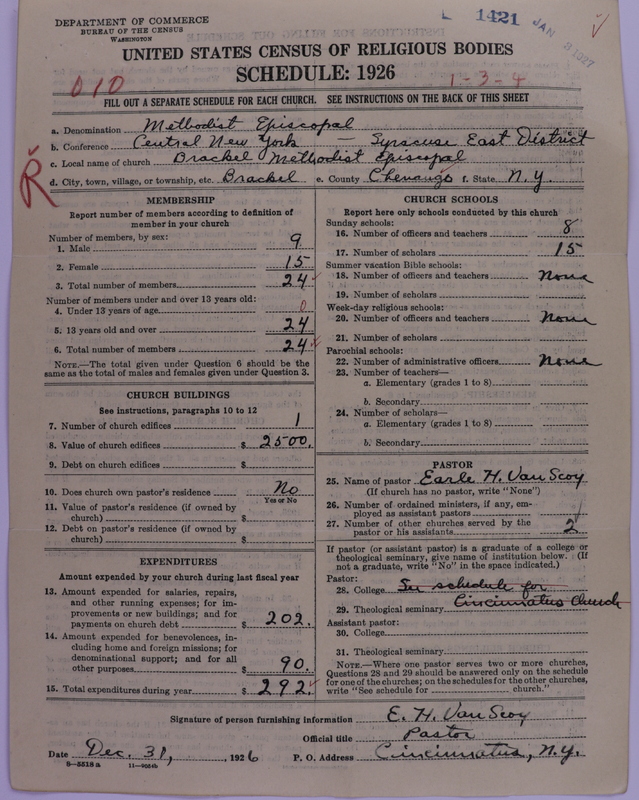 DEPARTMENT OF COMMERCE
BUREAU OF THE CENSUS
WASHINGTON
1421 JAN 3 1927
UNITED STATES CENSUS OF RELIGIOUS BODIES
SCHEDULE: 1926
010
1-3-4
FILL OUT A SEPARATE SCHEDULE FOR EACH CHURCH. SEE INSTRUCTIONS ON THE BACK OF THIS SHEET
a. Denomination Methodist Episcopal
b. Conference Central New York Syracuse East District
c. Local name of church Brackel Methodist Episcopal
d. City, town, village, or township, etc. Brackel e. County Chenango f. State N.Y.
R
MEMBERSHIP
Report number of members according to definition of
member in your church
Number of members, by sex:
1. Male 9
2. Female 15
3. Total number of members 24
Number of members under and over 13 years old:
4. Under 13 years of age 0
5. 13 years old and over 24
6. Total number of members 24
NOTE.—The total given under Question 6 should be
same as the total of males and females given under Question 3.
CHURCH BUILDINGS
See instructions, paragraphs 10 to 12
7. Number of church edifices 1
8. Value of church edifices $ 2500.
9. Debt on church edifices $
10. Does church own pastor's residence No
Yes or No
11. Value of pastor's residence (if owned by
church) $
12. Debt on pastor's residence (if owned by
church) $
EXPENDITURES
Amount expended by your church during last fiscal year
13. Amount expended for salaries, repairs,
and other running expenses; for im-
provements or new buildings; and for
payments on church debt $ 202.
14. Amount expended for benevolences, in-
cluding home and foreign missions; for
denominational support; and for all
other purposes $ 90.
15. Total expenditures during year $ 292.
CHURCH SCHOOLS
Report here only schools conducted by this church
Sunday schools:
16. Number of officers and teachers 8
17. Number of scholars 15
Summer vacation Bible schools:
18. Number of officers and teachers None
19. Number of scholars
Week-day religious schools:
20. Number of officers and teachers None
21. Number of scholars
Parochial schools:
22. Number of administrative officers None
23. Number of teachers—
a. Elementary (grades 1 to 8)
b. Secondary
24. Number of scholars—
a. Elementary (grades 1 to 8)
b. Secondary
PASTOR
25. Name of pastor Earle H. Van Scoy
(If church has no pastor, write "None")
26. Number of ordained ministers, if any, em-
ployed as assistant pastors
27. Number of other churches served by the
pastor or his assistants 2
If pastor (or assistant pastor) is a graduate of a college or
theological seminary, give name of institution below. (If
not a graduate, write "No" in the space indicated.)
Pastor:
28. College See schedule for
29. Theological seminary Cincinnatus Church
Assistant pastor:
30. College
31. Theological seminary
NOTE.—Where one pastor serves two or more churches,
Questions 28 and 29 should be answered only on the schedule
for one of the churches; on the schedules for the other churches,
write "See schedule for church."
Signature of person furnishing information E. H. Van Scoy
Official title Pastor
Date Dec. 31, 1926 P. O. Address Cincinnatus, N.Y.
8—5518a